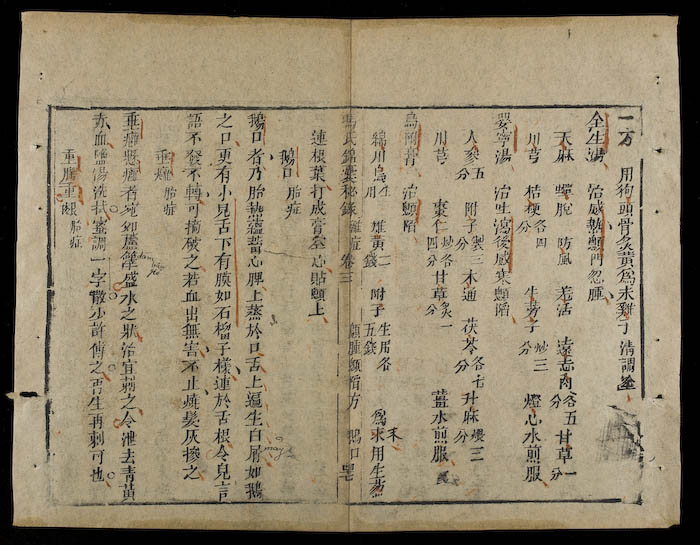 一方　用狗頭骨炙黃爲末雞子清調塗
全生湯　治感熱顖門忽腫
天麻　蟬脫　防風　羌活　遠志肉各五分　甘草一分
川芎　桔梗各四分　牛蒡子炒三分　燈心水煎服
嬰寧湯　治生瀉後感寒顖陷
人參五分　附子製三分　木通　茯苓各七分　升麻三分
川芎　棗仁炒各四分　甘草炙一分　薑水煎服
烏附膏　治顖陷
綿川烏生用　雄黃二錢　附子生用各五錢　爲末用生葱
馮氏錦囊秘錄　雜症　卷三　顖腫顖陷方　鵝口
連根葉打成膏空心貼顖上
鵝口　胎症
鵝口者乃胎熱蘊蓄心脾上蒸於口舌上遍生白屑如鵝
之口更有小兒舌下有膜如石榴子樣連於舌根令兒言
語不發不轉可摘破之若血出無害不止燒髮灰摻之
垂癰　胎症
垂癰懸癰者宛如蘆籜盛水之狀治宜刺之令泄去青黃
赤血鹽湯洗拭蜜調一字散少許傅之再生再刺可也
重齶重齦　胎症